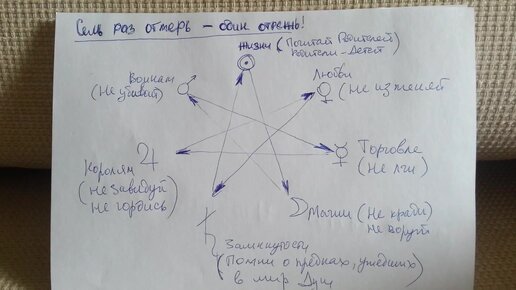 Семь раз отмерь – один отрежь!
Жизни (Почитай Родителей
Родители – Детей
Воинам
(Не убивай)
Любви
(Не изменяй
Королям
(Не завидуй
Не гордись)
Торговле
(Не лги)
Магии (Не кради)
Не воруй)
Замкнутости
(Помни о предках, ушедших
в мир Душ)